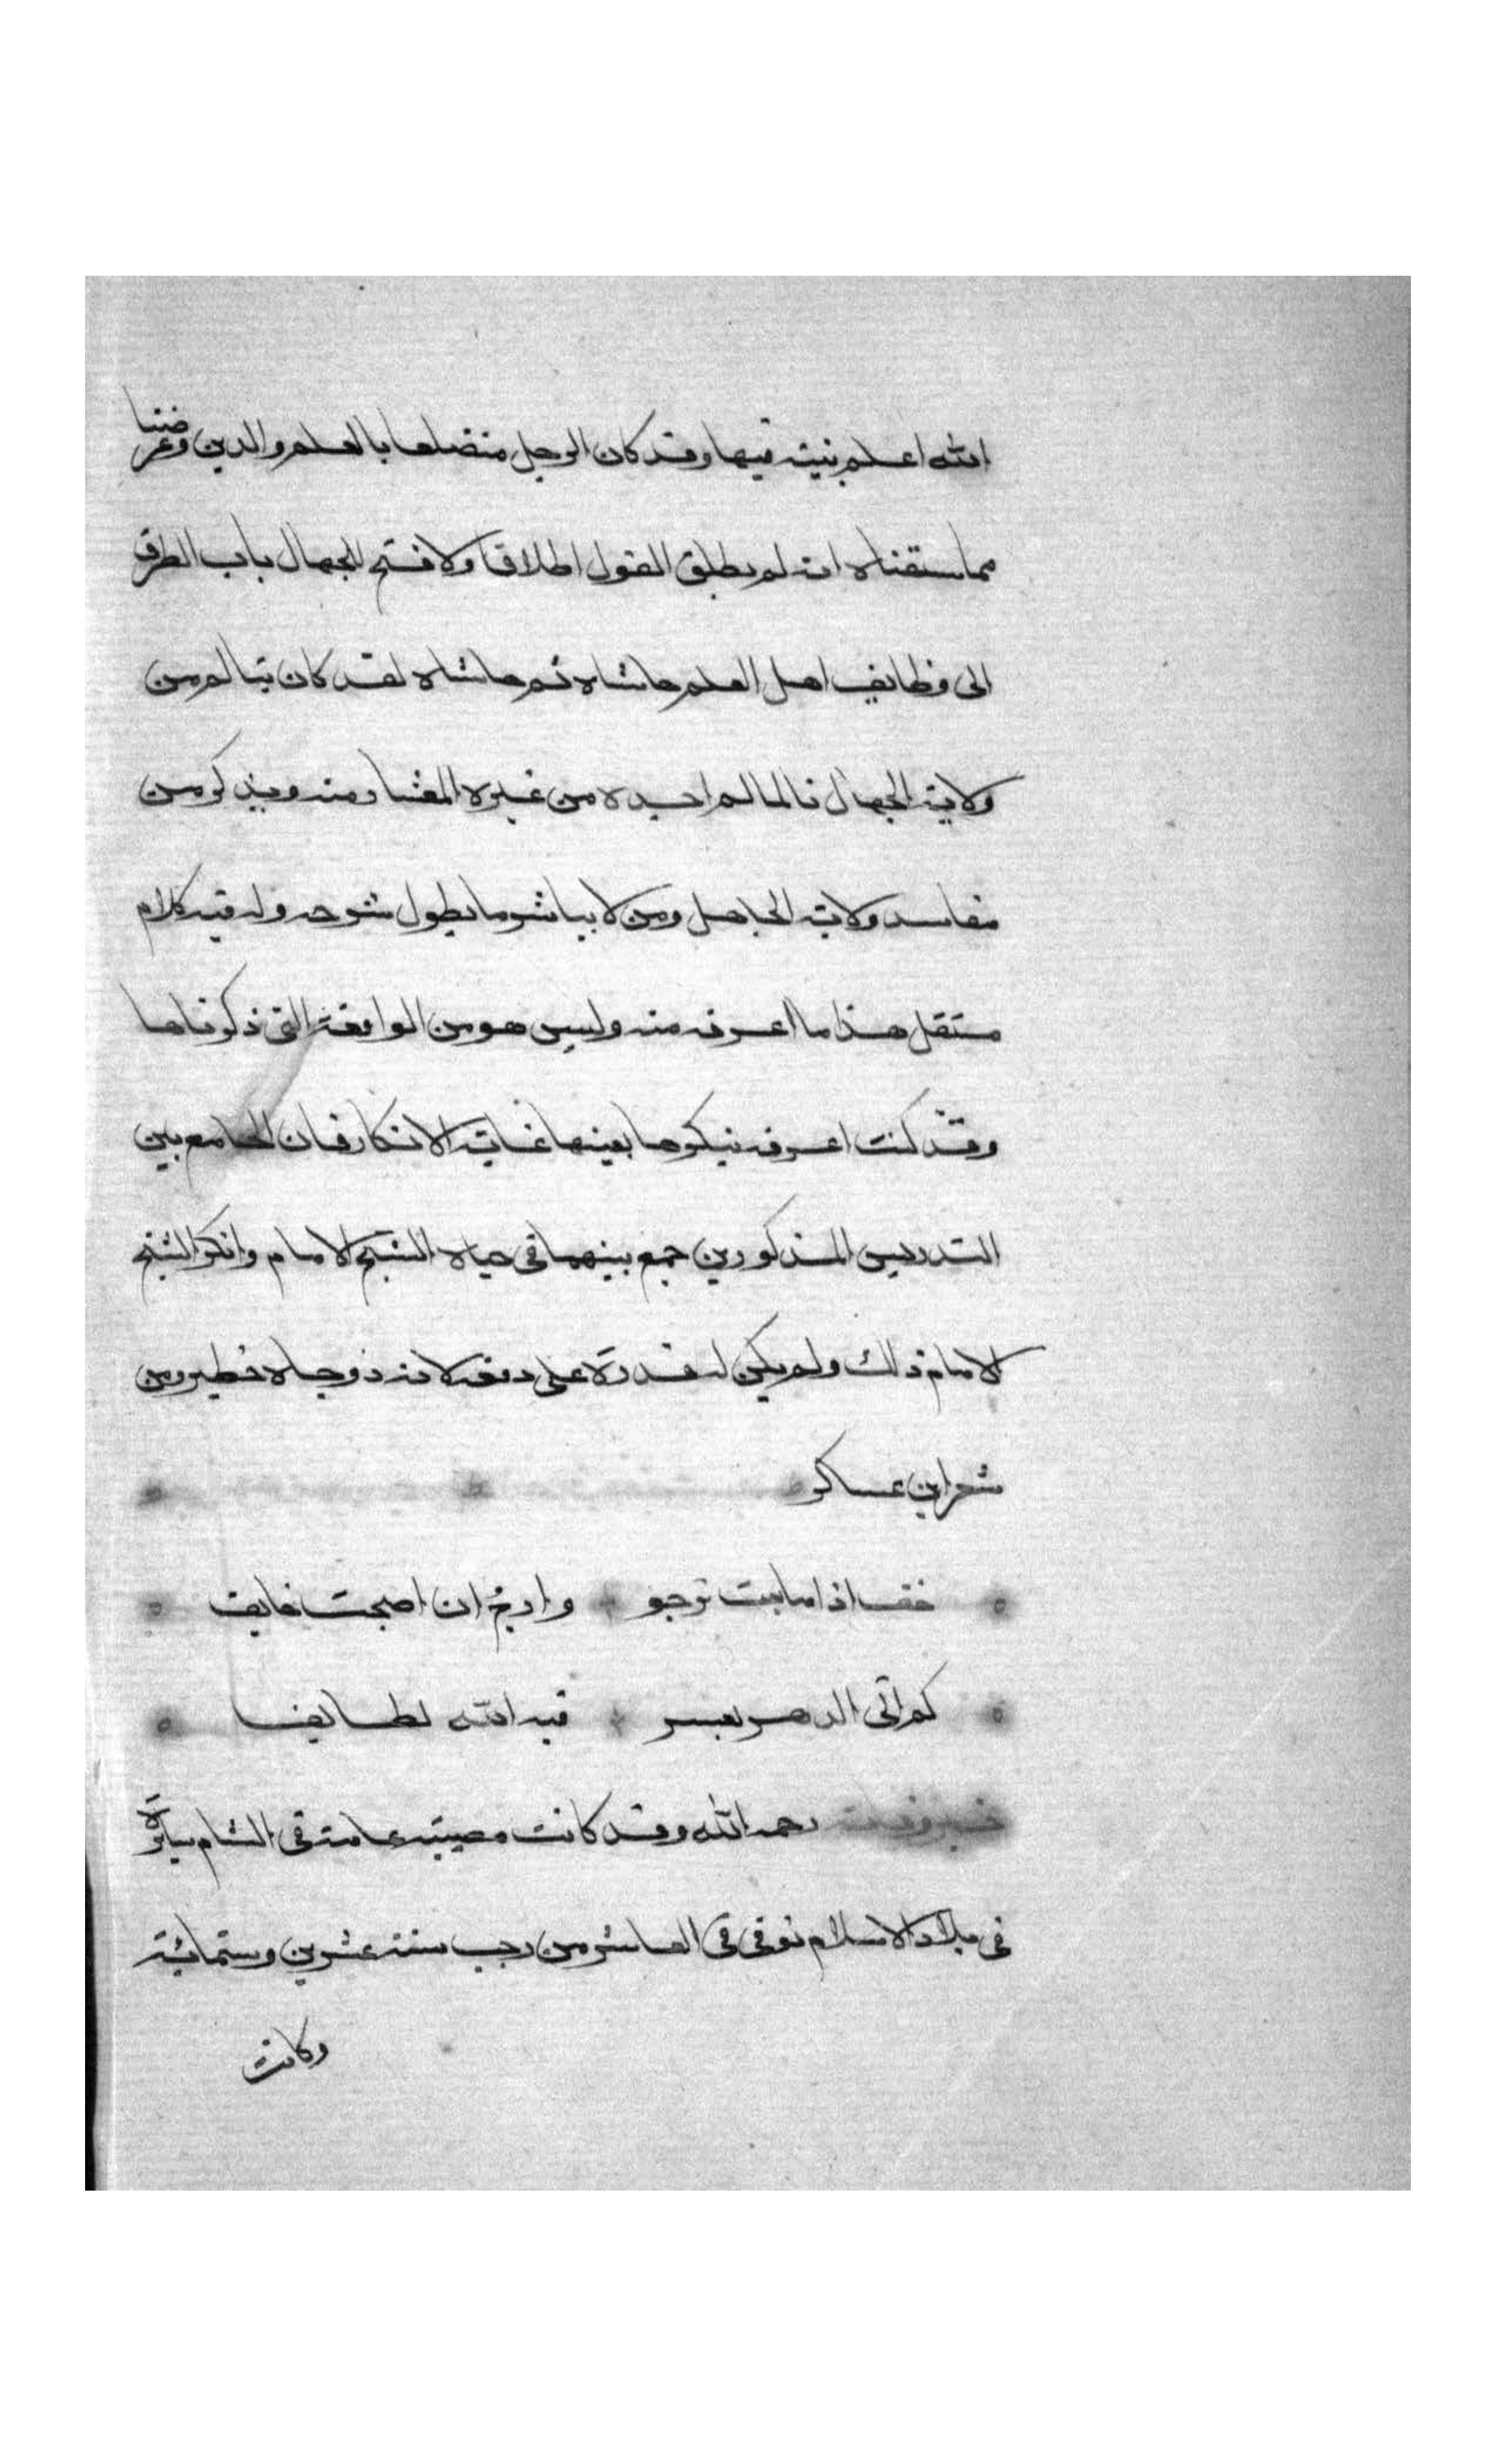 الله اعلم بنيته فيها وقد كان الرجل متضلعا بالعلم والدين وغرضنا
مما سقناه انه لم يطلق القول اطلاقا ولا فتح للجهال باب التطرق
الى وظايف اهل العلم حاشاه ثم حاشاه لقد كان يتالم من
ولاية الجهال تالما لم اجده من غيره المفسار منه ويذكر من
مفاسد ولاية الجاهل ومن لا يباشر ما يطول شرحه وله فيه كلام
مستقل هذا ما اعرفه منه وليس هو من الواقعة التى ذكرناها
وقد كنت اعرفه ينكرها بعينها غاية الانكار فان الجامع بين
التدريس المذكورين جمع بينهما فى حياة الشيخ الامام وانكر الشيخ
الامام ذلك ولم يكن له قدرة على دفعه لانه ذو جاه خطير ومن
شعر ابن عساكر
خف اذا ما بت ترجو وارج ان اصبحت خايف
كم اتى الدهر بعسر فيه لله لطايف
رحمه الله وقد كانت مصيبة عامة فى الشام سايرة
فى بلاد الاسلام توفى فى العاشر من رجب سنة عشرين وستمائة
وكانت